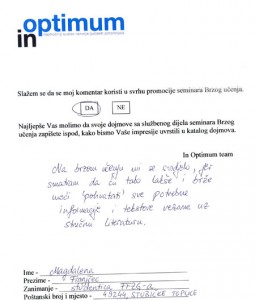 optimum
in
Slažem se da se moj komentar koristi u svrhu promocije seminara Brzog učenja.
DA NE
Najljepše Vas molimo da svoje dojmove sa službenog dijela seminara Brzog
učenja zapišete ispod, kako bismo Vaše impresije uvrstili u katalog dojmova.
In Optimum team
Na brzom učenju mi se svidjelo, jer
smatram da ću tako lakše i brže
moći "pohvatati" sve potrebne
informacije i tekstove vezane uz
stručnu literaturu.
Ime - Magdalena
Prezime -
Zanimanje - studentica FFZG-a
Poštanski broj i mjesto - 49244 STUBIČKE TOPLICE